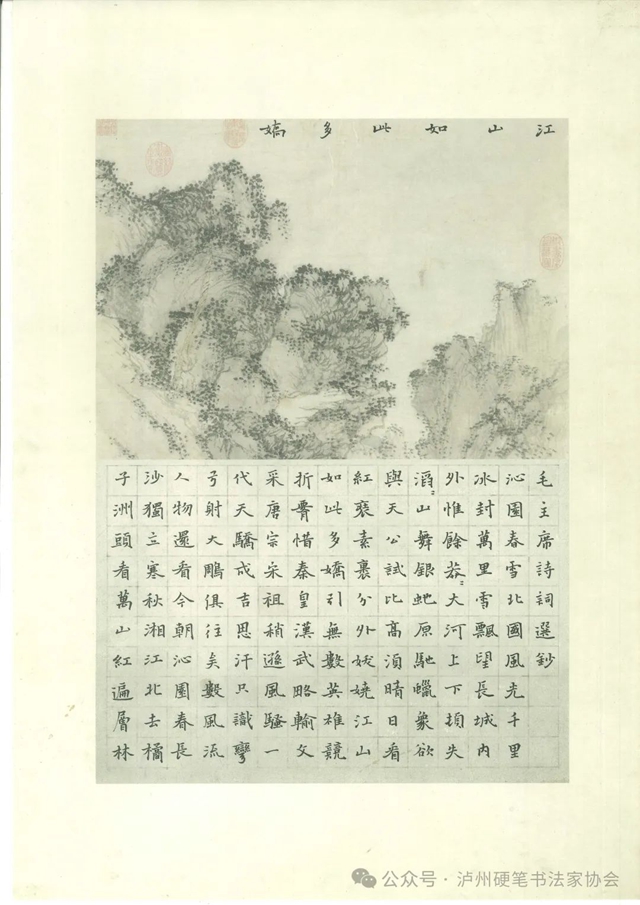 江山如此多嬌
毛主席詩詞選鈔
沁園春雪北國風光千里
冰封萬里雪飄望長城內
外惟餘莽〻大河上下頓失
滔〻山舞銀蛇原馳蠟象欲
與天公試比高須晴日看
紅裝素裹分外妖嬈江山
如此多嬌引無數英雄競
折腰惜秦皇漢武略輸文
采唐宗宋祖稍遜風騷一
代天驕成吉思汗只識彎
弓射大鵰俱往矣數風流
人物還看今朝沁園春長
沙獨立寒秋湘江北去橘
子洲頭看萬山紅遍層林
公众号·泸州硬笔书法家协会